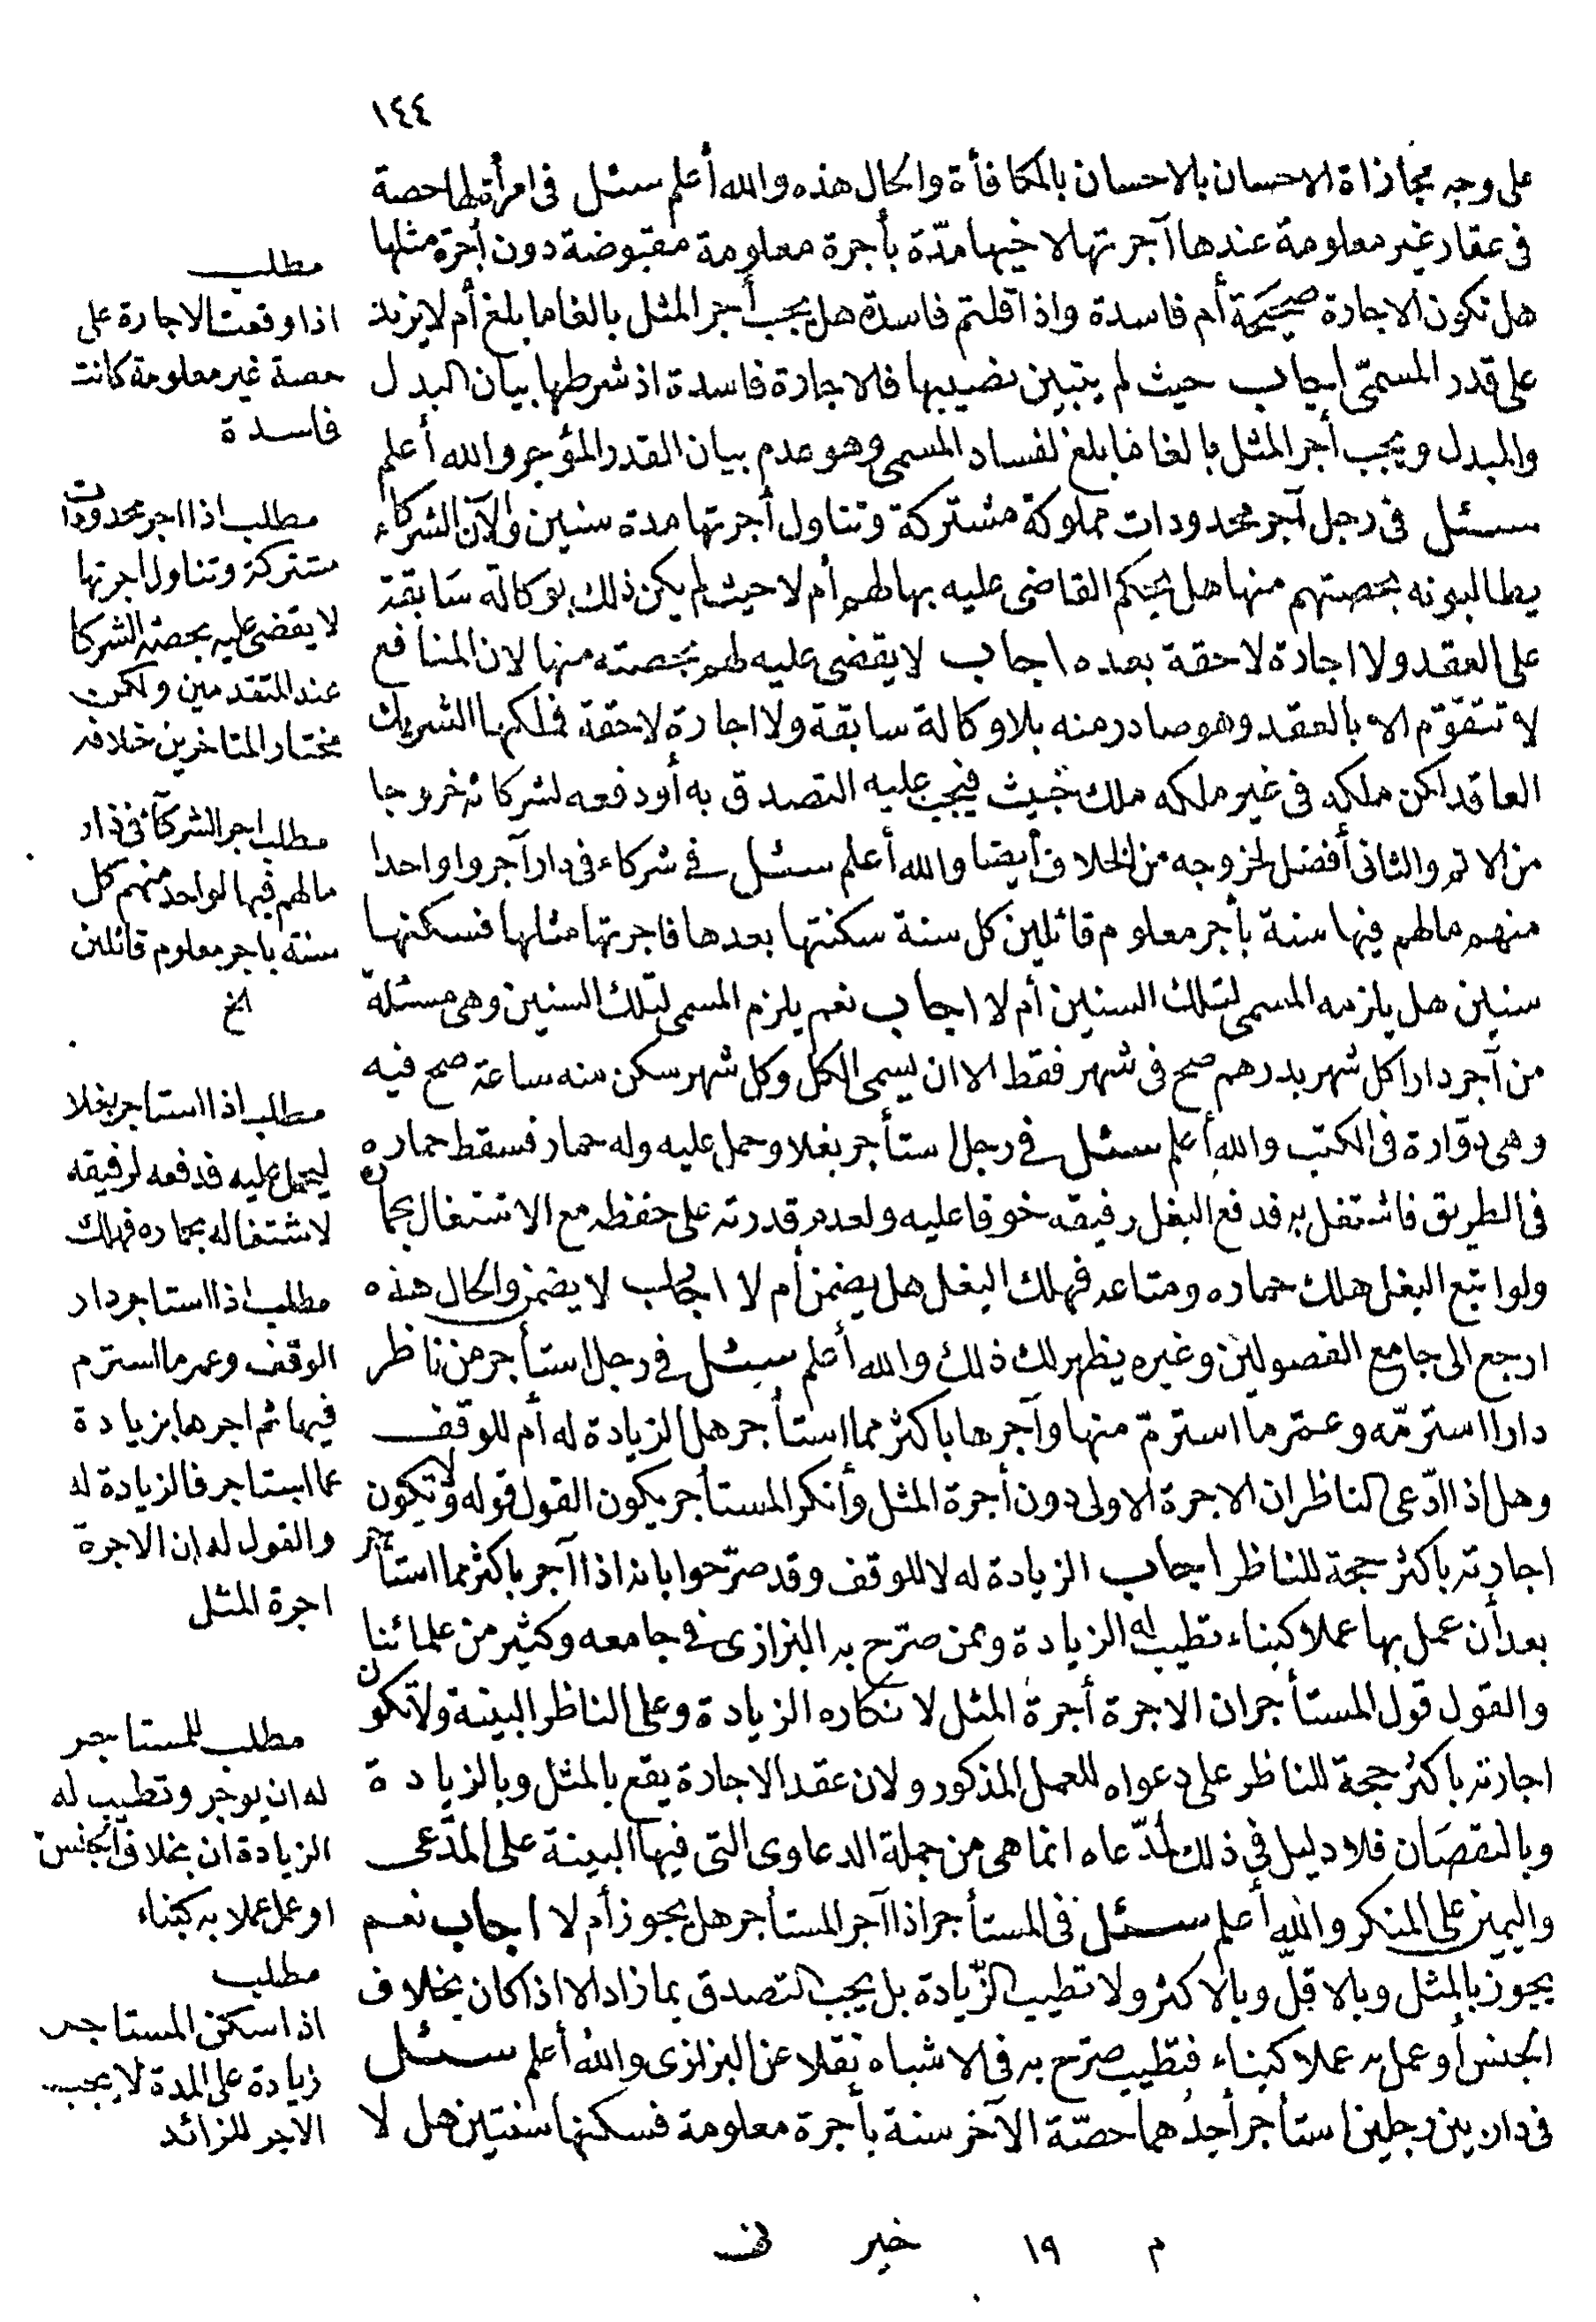 ١٤٤
على وجه مجازاة الاحسان بالاحسان بالمكافأة والحال هذه والله أعلم سئل في امرأة لها حصة
في عقار غير معلومة عندها آجرتها لاخيها مدّة بأجرة معلومة مقبوضة دون أجرة مثلها
هل تكون الاجارة صحيحة أم فاسدة واذا قلتم فاسدة هل يجب أجر المثل بالغا ما بلغ أم لا يزيد
على قدر المسمّى اجاب حيث لم يتبين نصيبها فالاجارة فاسدة اذ شرطها بيان البدل
والمبدل ويجب أجر المثل بالغا ما بلغ لفساد المسمى وهو عدم بيان القدر المؤجر والله أعلم
سئل في رجل آجر محدودات مملوكة مشتركة وتناول أجرتها مدة سنين والآن الشركاء
يطالبونه بحصتهم منها هل يحكم القاضى عليه بها لهم أم لا حيث لم يكن ذلك بوكالة سابقة
على العقد ولا اجازة لاحقة بعده اجاب لا يقضى عليه لهم بحصته منها لان المنافع
لا تتقوّم الا بالعقد وهو صادر منه بلا وكالة سابقة ولا اجازة لاحقة فملكها الشريك
العاقد لكن ملكه في غير ملكه ملك خبيث فيجب عليه التصدق به أو دفعه لشركائه خروجا
من الاثم والثانى أفضل لخروجه من الخلاف أيضا والله أعلم سئل في شركاء في دار آجروا واحدا
منهم مالهم فيها سنة بأجر معلوم قائلين كل سنة سكنتها بعدها فاجرتها مثلها فسكنها
سنين هل يلزمه المسمى لتلك السنين أم لا اجاب نعم يلزم المسمى لتلك السنين وهى مسئلة
من آجر دارا كل شهر بدرهم صح في شهر فقط الا ان يسمى الكل وكل شهر سكن منه ساعة صح فيه
وهى دوّارة في الكتب والله أعلم سئل في رجل استأجر بغلا وحمل عليه وله حمار فسقط حماره
في الطريق فاشتغل به فدفع البغل رفيقه خوفا عليه ولعدم قدرته على حفظه مع الاشتغال بحماره
ولو اتبع البغل هلك حماره ومتاعه فهلك البغل هل يضمن أم لا اجاب لا يضمن والحال هذه
ارجع الى جامع الفصولين وغيره يظهر لك ذلك والله أعلم سئل في رجل استأجر من ناظر
دارا استرمّه وعمّر ما استرمّ منها وآجرها باكثر مما استأجر هل الزيادة له أم للوقف
وهل اذا ادّعى الناظر ان الاجرة الاولى دون أجرة المثل وأنكر المستأجر يكون القول قوله ولا تكون
اجارته باكثر حجة للناظر اجاب الزيادة له لا للوقف وقد صرّحوا بانه اذا آجر باكثر مما استأجر
بعد أن عمل بها عملا كبناء تطيب له الزيادة وممن صرّح به البزازى في جامعه وكثير من علمائنا
والقول قول المستأجر ان الاجرة أجرة المثل لانكاره الزيادة وعلى الناظر البينة ولا تكون
اجارته باكثر حجة للناظر على دعواه للعمل المذكور ولان عقد الاجارة يقع بالمثل وبالزيادة
وبالنقصان فلا دليل في ذلك لمدّعاه انما هى من جملة الدعاوى التى فيها البينة على المدّعى
واليمين على المنكر والله أعلم سئل في المستأجر اذا آجر المستأجر هل يجوز أم لا اجاب نعم
يجوز بالمثل وبالاقلّ وبالاكثر ولا تطيب الزّيادة بل يجب التصدق بما زاد الا اذا كان بخلاف
الجنس أو عمل به عملا كبناء فتطيب صرّح به في الاشباه نقلا عن البزازى والله أعلم سئل
في دار بين رجلين استأجر أحدهما حصّة الآخر سنة بأجرة معلومة فسكنها سنتين هل لا
مطلب
اذا وقعت الاجارة على
حصة غير معلومة كانت
فاسدة
مطلب اذا اجر محدودات
مشتركة وتناول اجرتها
لا يقضى عليه بحصة الشركا
عند المتقدمين ولكن
مختار المتاخرين خلافه
مطلب اجر الشركآئ في دار
مالهم فيها لواحد منهم كل
سنة باجر معلوم قائلين
الخ
مطلب اذا استاجر بغلا
ليحمل عليه فدفعه لرفيقه
لاشتغاله بحماره فهلك
مطلب اذا استاجر دار
الوقف وعمر ما استرم
فيها ثم اجرها بزيادة
عما استاجر فالزيادة له
والقول له ان الاجرة
اجرة المثل
مطلب للمستاجر
له ان يوجر وتطيب له
الزيادة ان بخلاف الجنس
او عمل عملا به كبناء
مطلب
اذا سكن المستاجر
زيادة على المدة لا يجب
الاجر للزائد
م ١٩ خير في